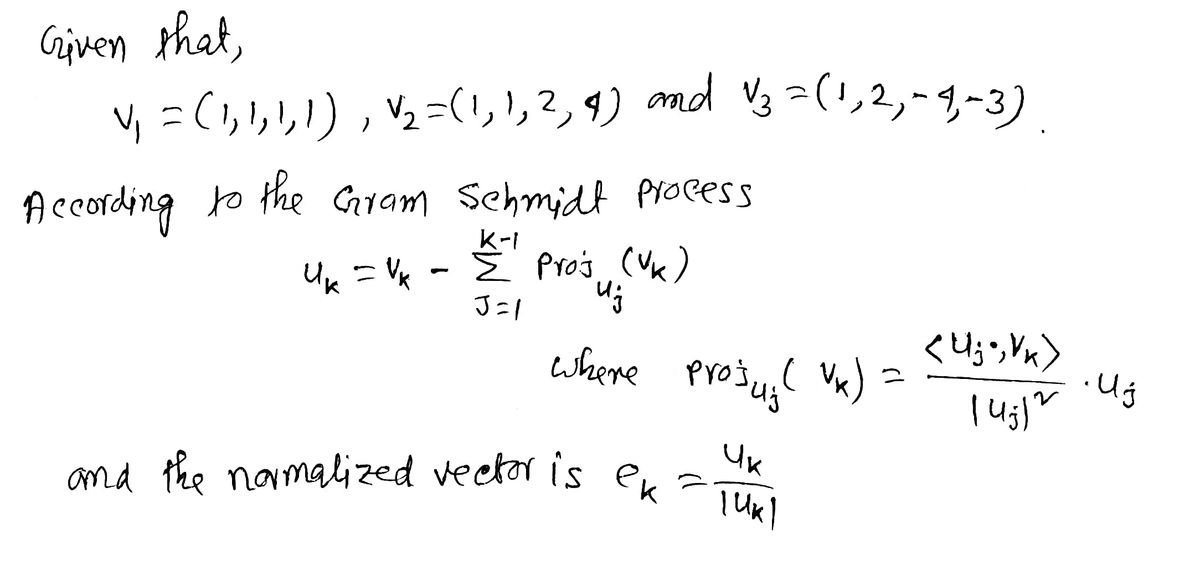 Given that,
v₁ = (1,1,1,1) , v₂ = (1,1,2,4) and v₃ = (1,2,-4,-3).
According to the Gram Schmidt process
u_k = v_k - \sum_{J=1}^{k-1} proj_{u_j}(v_k)
where proj_{u_j}(v_k) = \frac{<u_j·,v_k>}{|u_j|²} · u_j
and the normalized vector is e_k = \frac{u_k}{|u_k|}